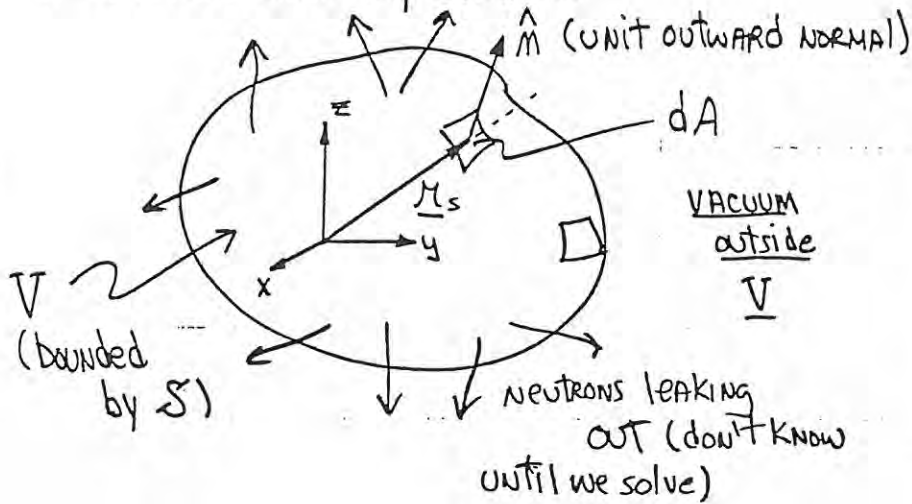 n̂ (UNIT OUTWARD NORMAL)
z
dA
r_s
VACUUM
outside
V
y
x
V
(bounded
by S)
NEUTRONS leaking
OUT (don't KNOW
until we solve)